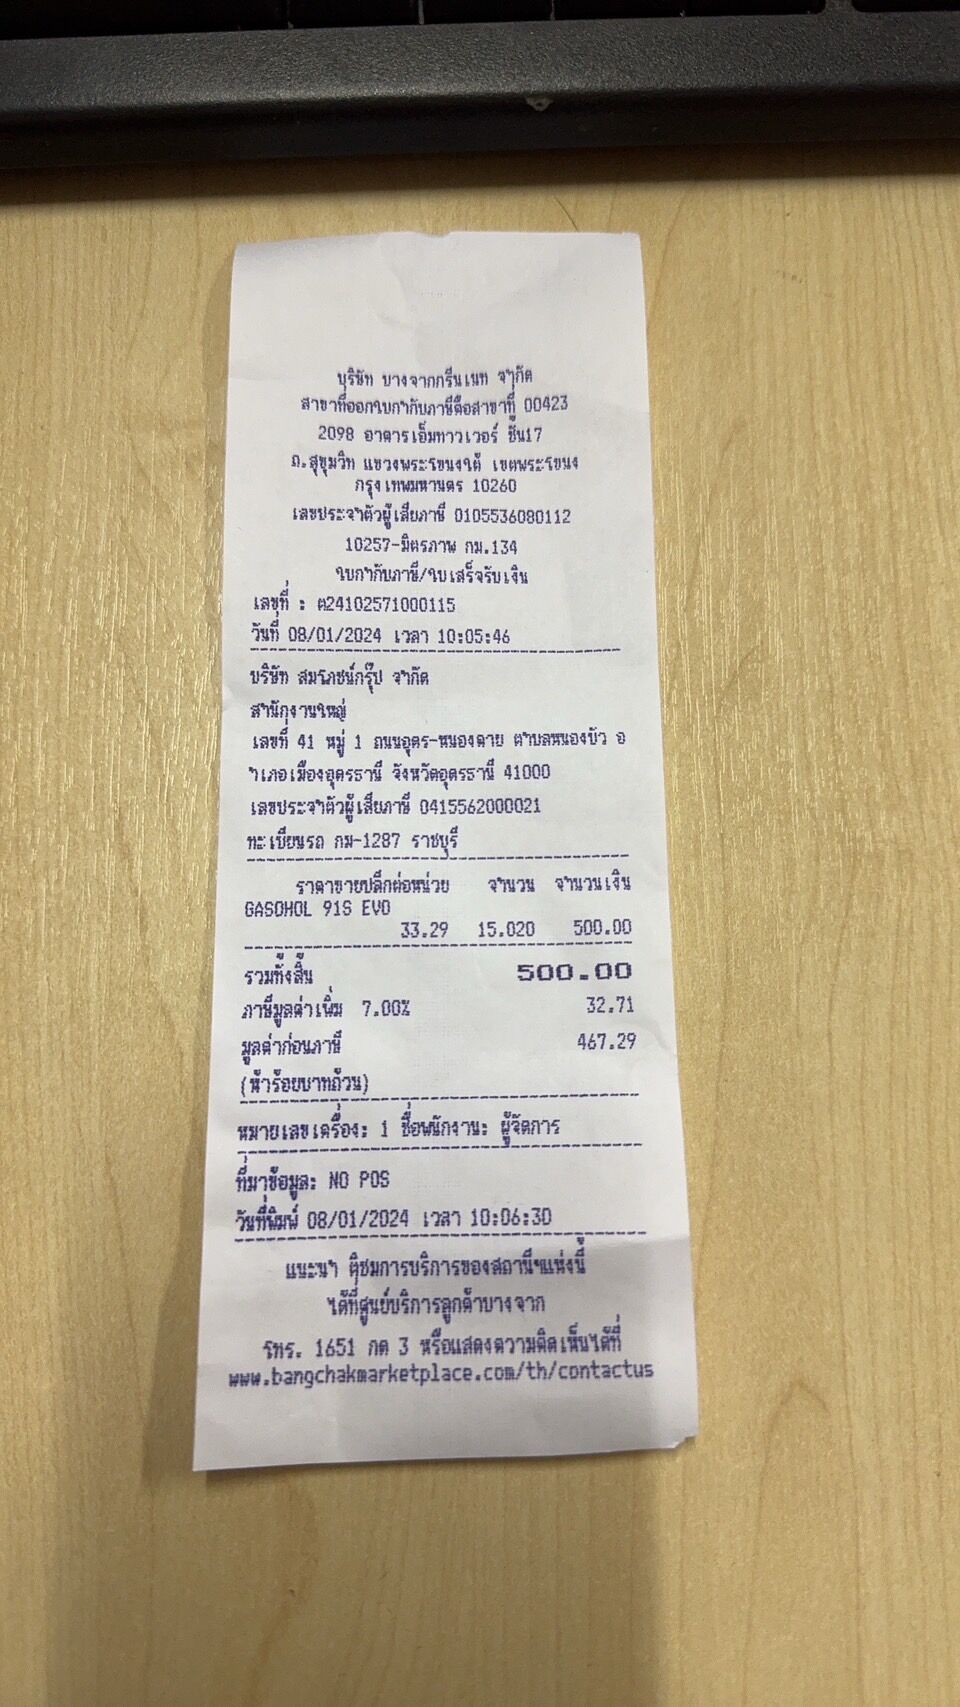 บริษัท บางจากกรีนเนท จำกัด
สาขาที่ออกใบกำกับภาษีคือสาขาที่ 00423
2098 อาคารเอ็มทาวเวอร์ ชั้น17
ถ.สุขุมวิท แขวงพระโขนงใต้ เขตพระโขนง
กรุงเทพมหานคร 10260
เลขประจำตัวผู้เสียภาษี 0105536080112
10257-มิตรภาพ กม.134
ใบกำกับภาษี/ใบเสร็จรับเงิน
เลขที่ : ต24102571000115
วันที่ 08/01/2024 เวลา 10:05:46
บริษัท สมโภชน์กรุ๊ป จำกัด
สำนักงานใหญ่
เลขที่ 41 หมู่ 1 ถนนอุดร-หนองคาย ตำบลหนองบัว อ
ำเภอเมืองอุดรธานี จังหวัดอุดรธานี 41000
เลขประจำตัวผู้เสียภาษี 0415562000021
ทะเบียนรถ กม-1287 ราชบุรี
ราคาขายปลีกต่อหน่วย จำนวน จำนวนเงิน
GASOHOL 91S EVO
33.29 15.020 500.00
รวมทั้งสิ้น 500.00
ภาษีมูลค่าเพิ่ม 7.00% 32.71
มูลค่าก่อนภาษี 467.29
(ห้าร้อยบาทถ้วน)
หมายเลขเครื่อง: 1 ชื่อพนักงาน: ผู้จัดการ
ที่มาข้อมูล: NO POS
วันที่พิมพ์ 08/01/2024 เวลา 10:06:30
แนะนำ ติชมการบริการของสถานีฯแห่งนี้
ได้ที่ศูนย์บริการลูกค้าบางจาก
โทร. 1651 กด 3 หรือแสดงความคิดเห็นได้ที่
www.bangchakmarketplace.com/th/contactus